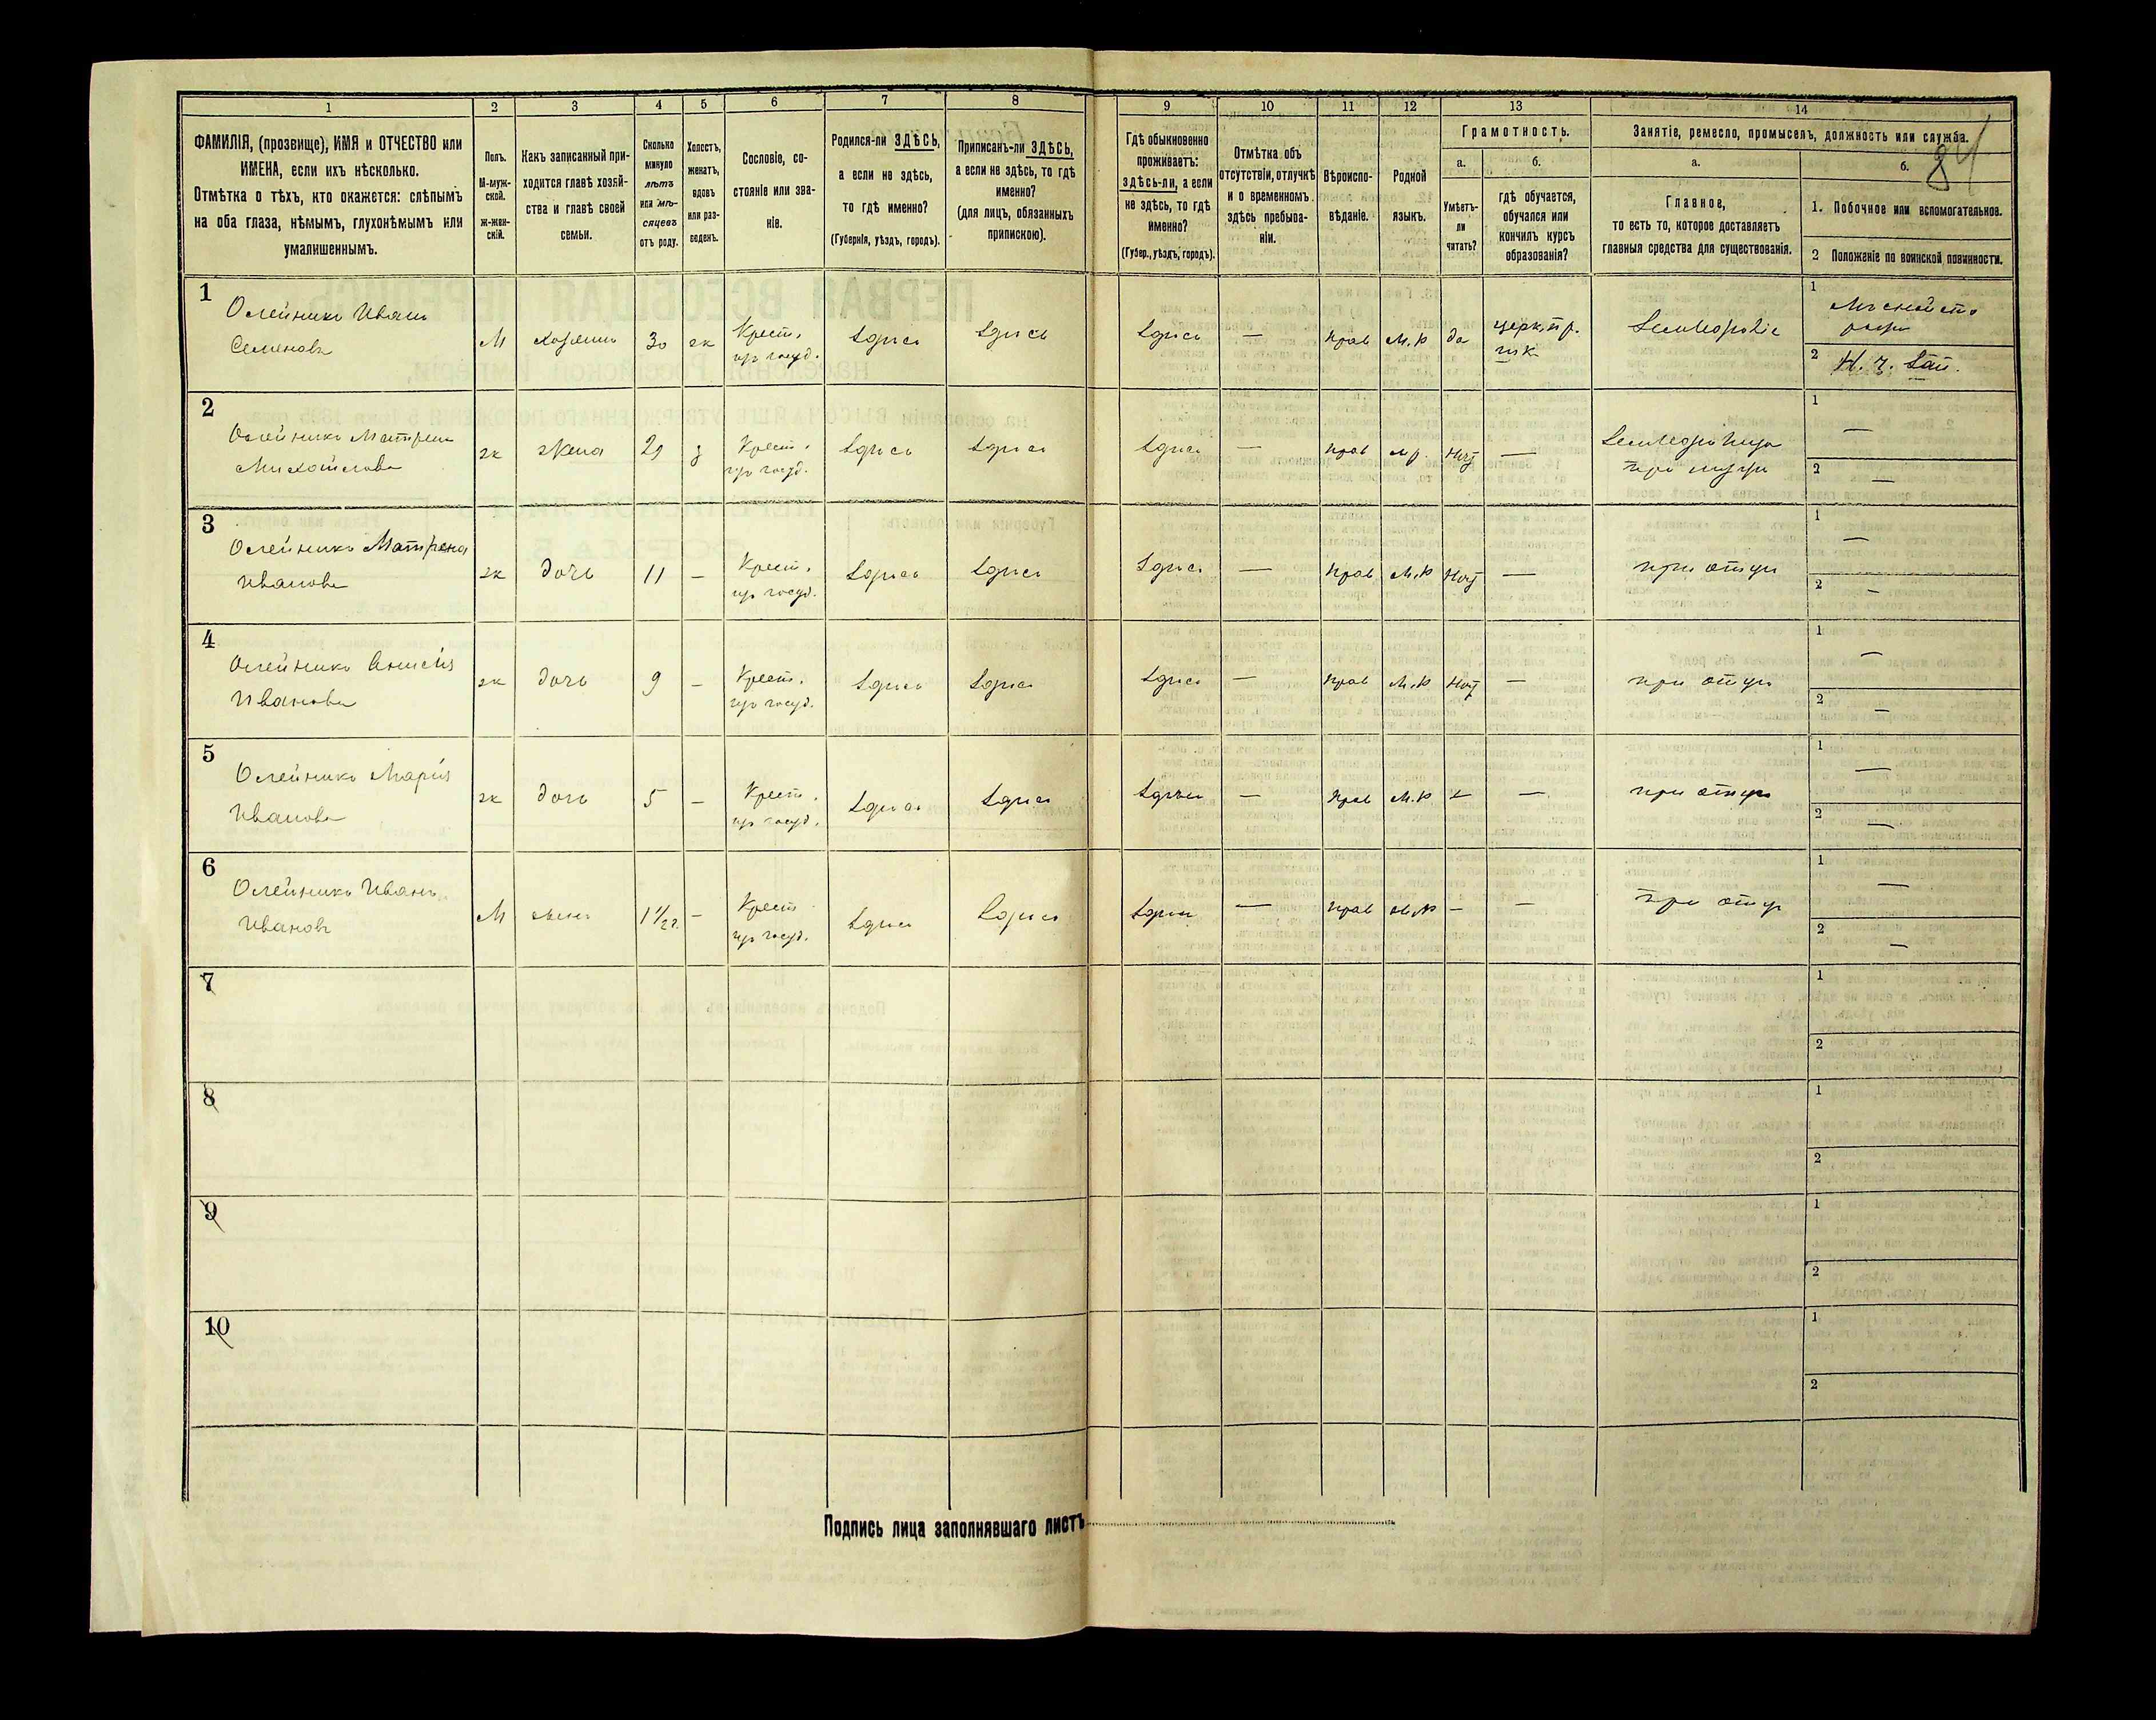 84
1 2 3 4 5 6 7 8 9 10 11 12 13 14
ФАМИЛІЯ, (прозвище), ИМЯ и ОТЧЕСТВО или
ИМЕНА, если ихъ нѣсколько.
Отмѣтка о тѣхъ, кто окажется: слѣпымъ
на оба глаза, нѣмымъ, глухонѣмымъ или
умалишеннымъ.
Полъ.
М-муж-
ской.
ж-жен-
скій.
Какъ записанный при-
ходится главѣ хозяй-
ства и главѣ своей
семьи.
Сколько
минуло
лѣтъ
или мѣ-
сяцевъ
отъ роду.
Холостъ,
женатъ,
вдовъ
или раз-
веденъ.
Сословіе, со-
стояніе или зва-
ніе.
Родился-ли ЗДѢСЬ,
а если не здѣсь,
то гдѣ именно?
(Губернія, уѣздъ, городъ).
Приписанъ-ли ЗДѢСЬ,
а если не здѣсь, то гдѣ
именно?
(для лицъ, обязанныхъ
припискою).
Гдѣ обыкновенно
проживаетъ:
здѣсь-ли, а если
не здѣсь, то гдѣ
именно?
(Губер., уѣздъ, городъ).
Отмѣтка объ
отсутствіи, отлучкѣ
и о временномъ
здѣсь пребыва-
ніи.
Вѣроиспо-
вѣданіе.
Родной
языкъ.
Грамотность.
а.
Умѣетъ-
ли
читать?
б.
гдѣ обучается,
обучался или
кончилъ курсъ
образованія?
Занятіе, ремесло, промыселъ, должность или служба.
а.
Главное,
то есть то, которое доставляетъ
главныя средства для существованія.
б.
1. Побочное или вспомогательное.
2 Положеніе по воинской повинности.
1
Олейникъ Иванъ
Семеновъ
М хозяинъ 30 ж Крест. здѣсь здѣсь здѣсь — прав м.р да церк. пр.
из госуд. шк
Земледѣліе
1
2 Н. ч. Зап.
2
Олейникъ Матрена
Михайлова
ж жена 29 з Крест. здѣсь здѣсь здѣсь — прав м р. нѣт —
из госуд.
при мужѣ
1 —
2 —
3
Олейникъ Матрена
Иванова
ж дочь 11 — Крест. здѣсь здѣсь здѣсь — прав м.р нѣт — при отцѣ
из госуд.
1 —
2 —
4
Олейникъ Анисія
Иванова
ж дочь 9 — Крест. здѣсь здѣсь здѣсь — прав м.р нѣт — при отцѣ
из госуд.
1 —
2 —
5
Олейникъ Марія
Иванова
ж дочь 5 — Крест. здѣсь здѣсь здѣсь — прав м.р — — при отцѣ
из госуд.
1 —
2 —
6
Олейникъ Иванъ
Ивановъ
М сынъ 1 1/2 г. — Крест здѣсь здѣсь здѣсь — прав м.р — — при отцѣ
из госуд.
1 —
2 —
7
1
2
8
1
2
9
1
2
10
1
2
Подпись лица заполнявшаго листъ